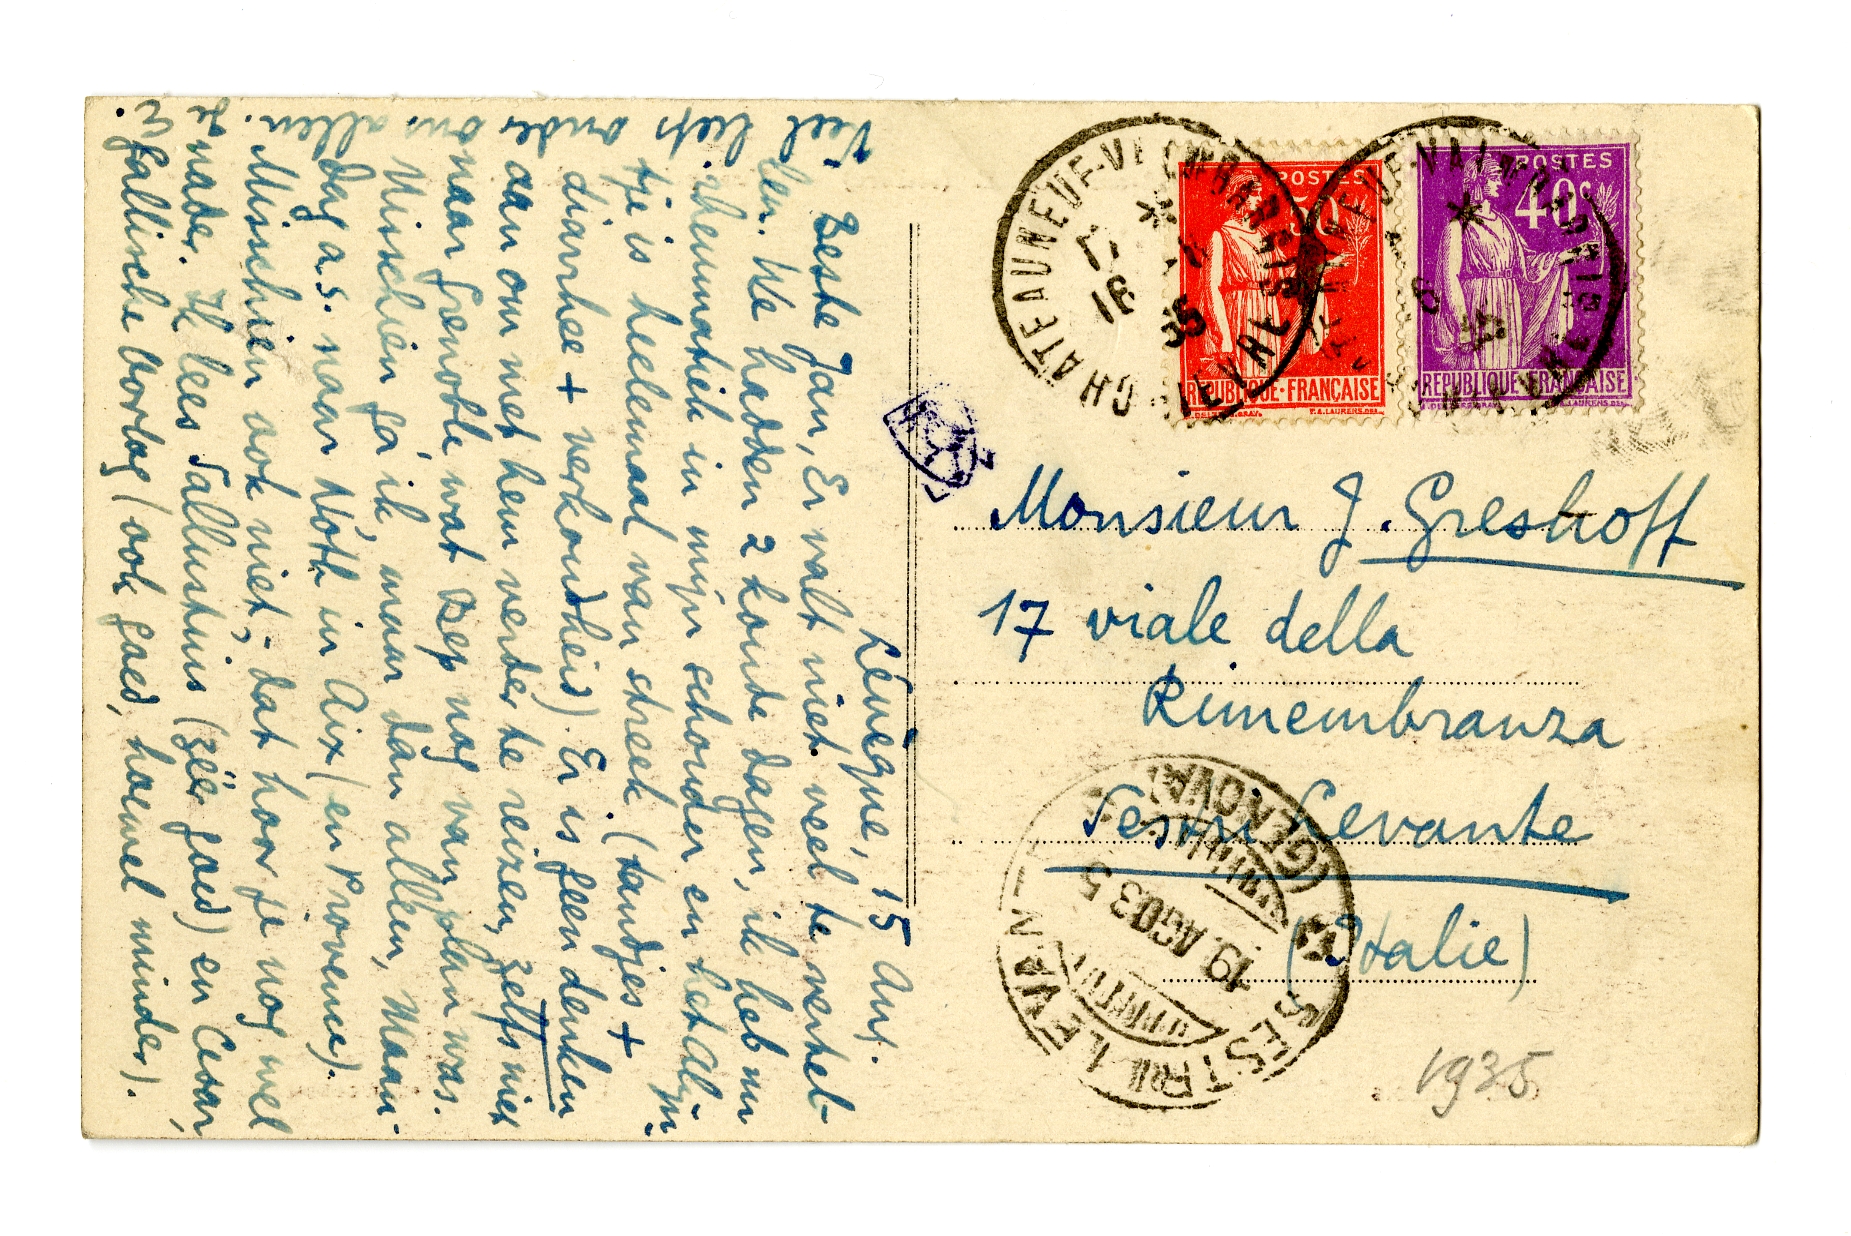 Lévignè, 15 Aug.
Beste Jan, Er valt niet veel te vertel-
len. We hadden 2 koude dagen, ik heb nu
rheumatiek in mijn schouder en het Alijn-
tje is heelemaal van streek (tandjes +
diarrhee + verkoudheid). Er is geen denken
aan om met hem verder te reizen, zelfs niet
naar Grenoble, wat Bep nog van plan was.
Misschien ga ik maar dan alleen, Maan-
dag a.s. naar Nóth in Aix (en Provence).
Misschien ook niet; - dat hoor je nog wel
nader. Ik lees Sallustius (zéér goed) en Cesar,
Gallische Oorlog (ook goed, hoewel minder).
Veel liefs onder ons allen.
je
E.
CHATEAUNEUF-VI
17
18
35
POSTES
50
REPUBLIQUE-FRANÇAISE
POSTES
40c
REPUBLIQUE FRANÇAISE
Monsieur J. Greshoff
17 viale della
Rimembranza
Sestri Levante
(Italie)
SESTRI LEVANTE
(GENOVA)
19. AGO 35
1935